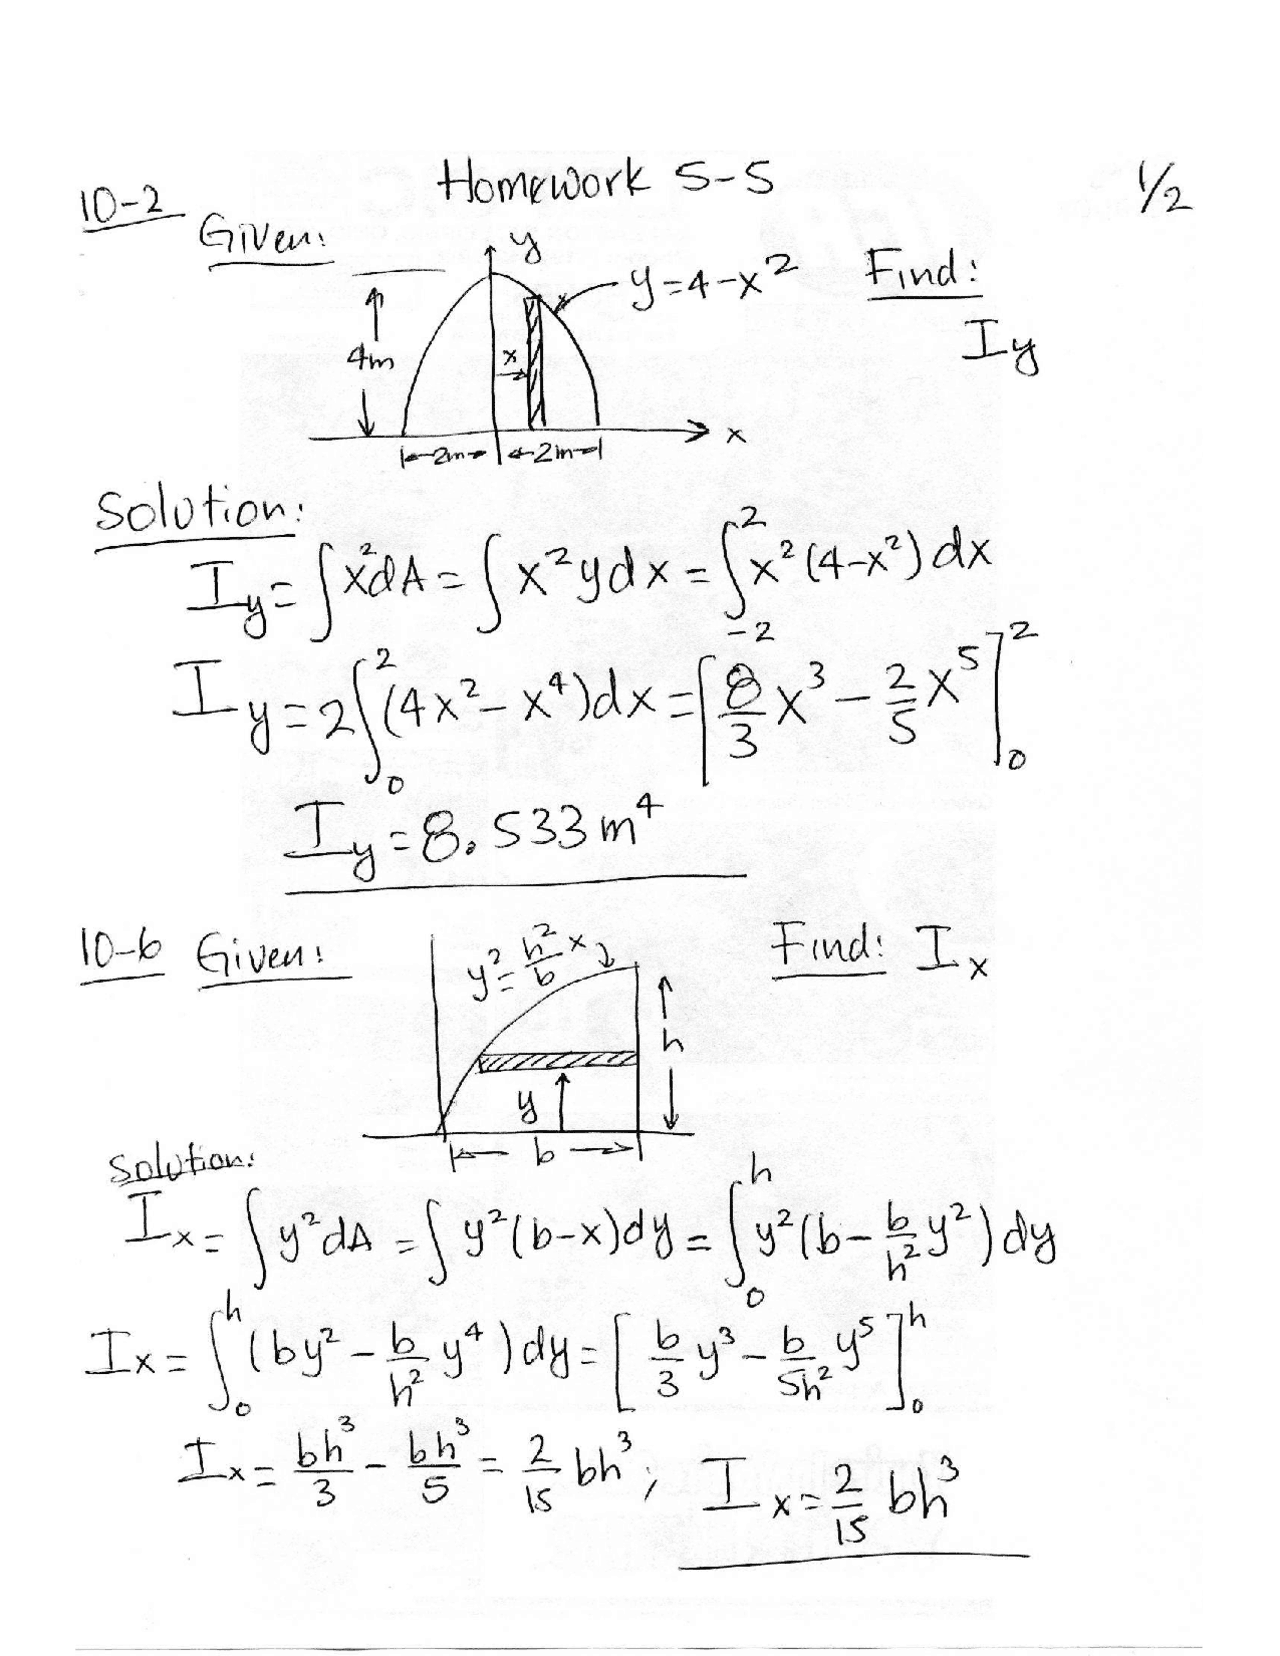 Homework 5-5
1/2
10-2
Given:
y
y=4-x²
Find:
Iy
4m
x
x
2m 2m
Solution:
Iy = ∫x²dA = ∫x²ydx = ∫₋₂² x²(4-x²)dx
Iy = 2∫₀²(4x²-x⁴)dx = [8/3 x³ - 2/5 x⁵]₀²
Iy = 8.533 m⁴
10-6 Given:
y² = h²/b x
Find: Ix
h
y
b
Solution:
Ix = ∫y²dA = ∫y²(b-x)dy = ∫₀ʰ y²(b - b/h² y²)dy
Ix = ∫₀ʰ(by² - b/h² y⁴)dy = [b/3 y³ - b/5h² y⁵]₀ʰ
Ix = bh³/3 - bh³/5 = 2/15 bh³; Ix = 2/15 bh³